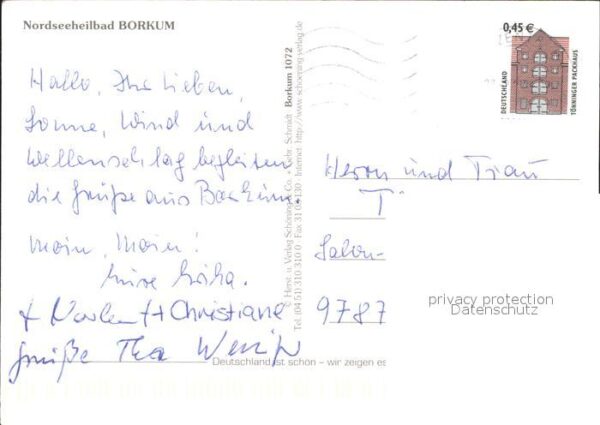 Nordseeheilbad BORKUM
Hallo, Ihr Lieben,
Sonne, Wind und
Wellenschlag begleiten
die Grüße aus Borkum.
Moin, Moin!
Eure
+ Norbert + Christiane
Grüße
© Herst. u. Verlag Schöning & Co. + Gebr. Schmidt Borkum 1072
Tel. (04 51) 310 310 Fax 31 03 130 Internet http://www.schoening-verlag.de
Deutschland ist schön – wir zeigen es
0,45 €
DEUTSCHLAND
TÖNNINGER PACKHAUS
Herrn und Frau
T
9787
privacy protection
Datenschutz